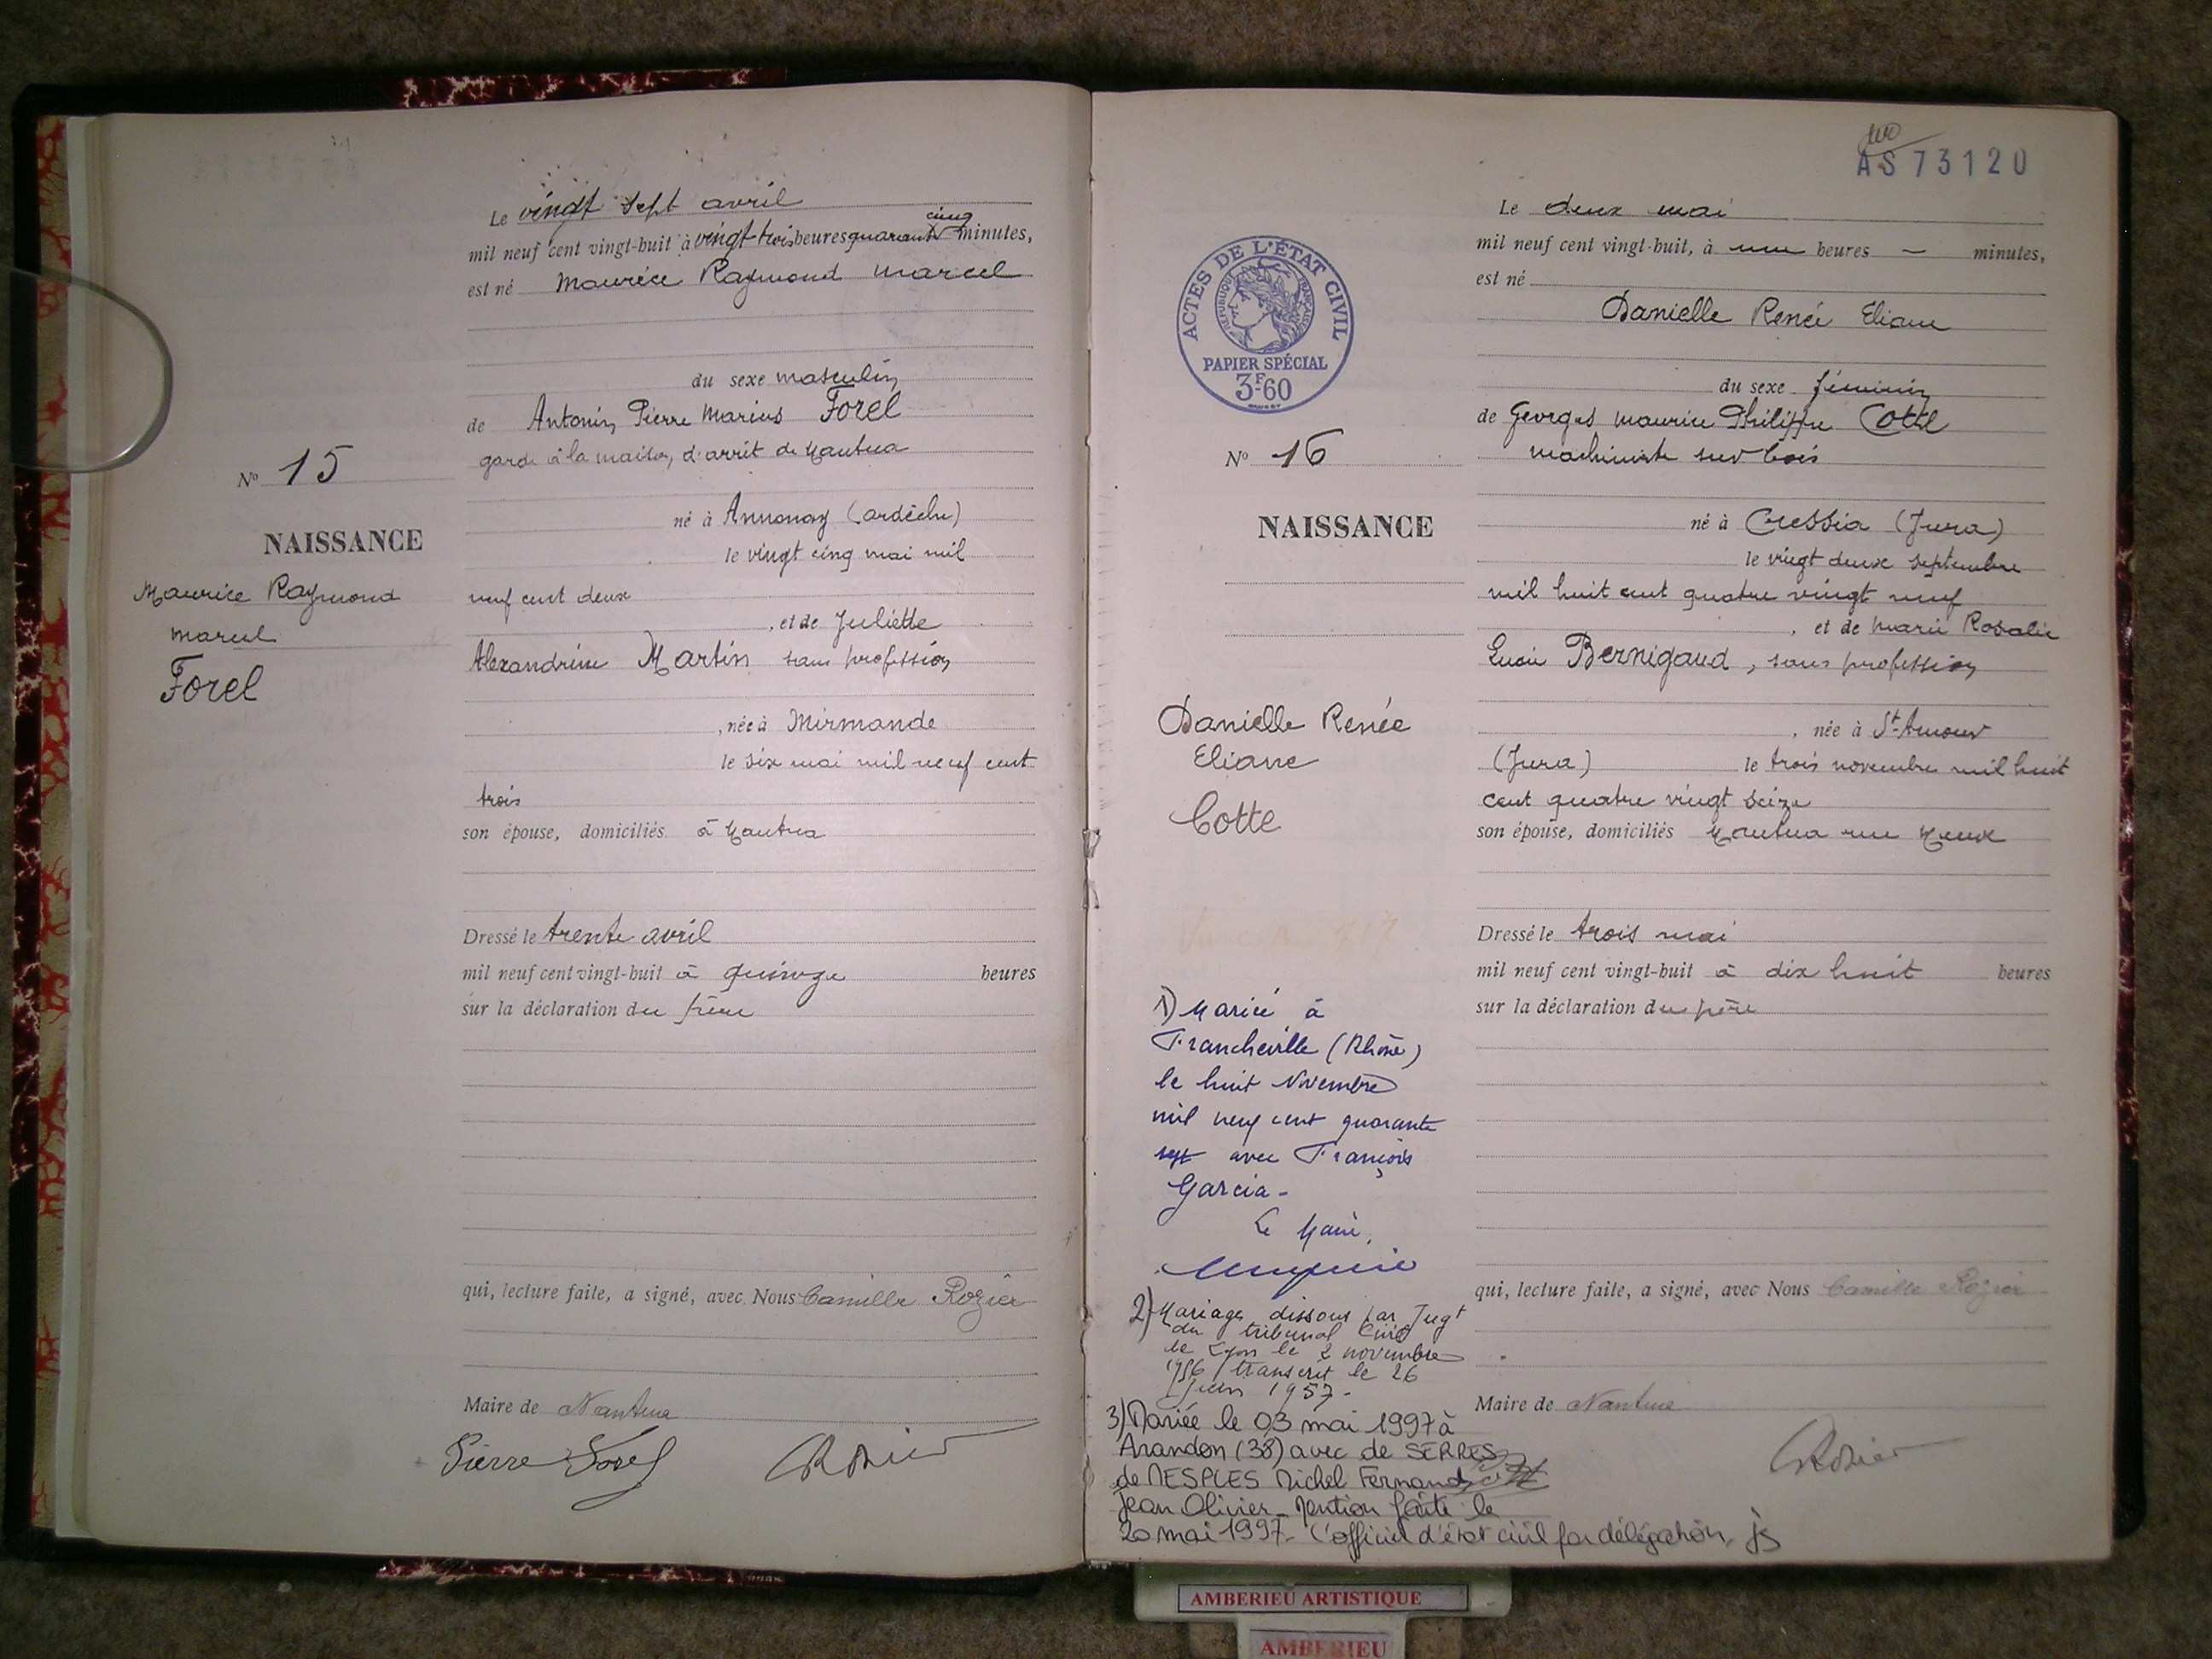 Le vingt sept avril
mil neuf cent vingt-huit à vingt trois heures quarante cinq minutes,
est né Maurice Raymond Marcel
du sexe masculin
de Antonin Pierre Marius Forel
garde à la maison d'arrêt de Nantua
Nº 15
né à Annonay (ardèche)
NAISSANCE
le vingt cinq mai mil
Maurice Raymond
neuf cent deux
Marcel
, et de Juliette
Forel
Alexandrine Martin sans profession
, née à Mirmande
le six mai mil neuf cent
trois
son épouse, domiciliés à Nantua
Dressé le trente avril
mil neuf cent vingt-huit à quinze heures
sur la déclaration du père
qui, lecture faite, a signé, avec Nous Camille Rozier
Maire de Nantua
Pierre Forel
CRozier
AS 73120
Le deux mai
mil neuf cent vingt-huit, à une heures — minutes,
est né
Danielle Renée Eliane
du sexe féminin
de Georges Maurice Philippe Cotte
machiniste sur bois
ACTES DE L'ÉTAT CIVIL
RÉPUBLIQUE FRANÇAISE
PAPIER SPÉCIAL
3F60
Nº 16
né à Cressia (Jura)
NAISSANCE
le vingt deux septembre
mil huit cent quatre vingt neuf
, et de Marie Rosalie
Lucie Bernigaud, sans profession
Danielle Renée
, née à St-Amour
Eliane
(Jura) le trois novembre mil huit
cent quatre vingt seize
Cotte
son épouse, domiciliés Nantua rue
Dressé le trois mai
mil neuf cent vingt-huit à dix huit heures
sur la déclaration du père
1) Mariée à
Francheville (Rhône)
le huit Novembre
mil neuf cent quarante
sept avec François
Garcia-
Le Maire,
2) Mariage dissous par Jugt
du tribunal Civil
de Lyon le 2 novembre
1956 transcrit le 26
Juin 1957-
3) Mariée le 03 mai 1997 à
Arandon (38) avec de SERRES
de MESPLES Michel Fernand
Jean Olivier - Mention faite le
20 mai 1997- L'officier d'état civil par délégation, js
qui, lecture faite, a signé, avec Nous Camille Rozier
Maire de Nantua
CRozier
AMBERIEU ARTISTIQUE
AMBERIEU